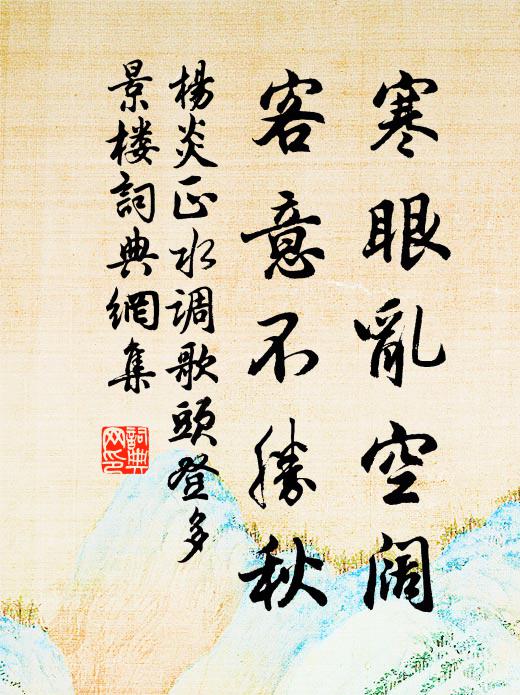 寒眼亂空阔
客意不勝秋
楊炎正水调歌頭登多
景楼詞典網集
詞典网印